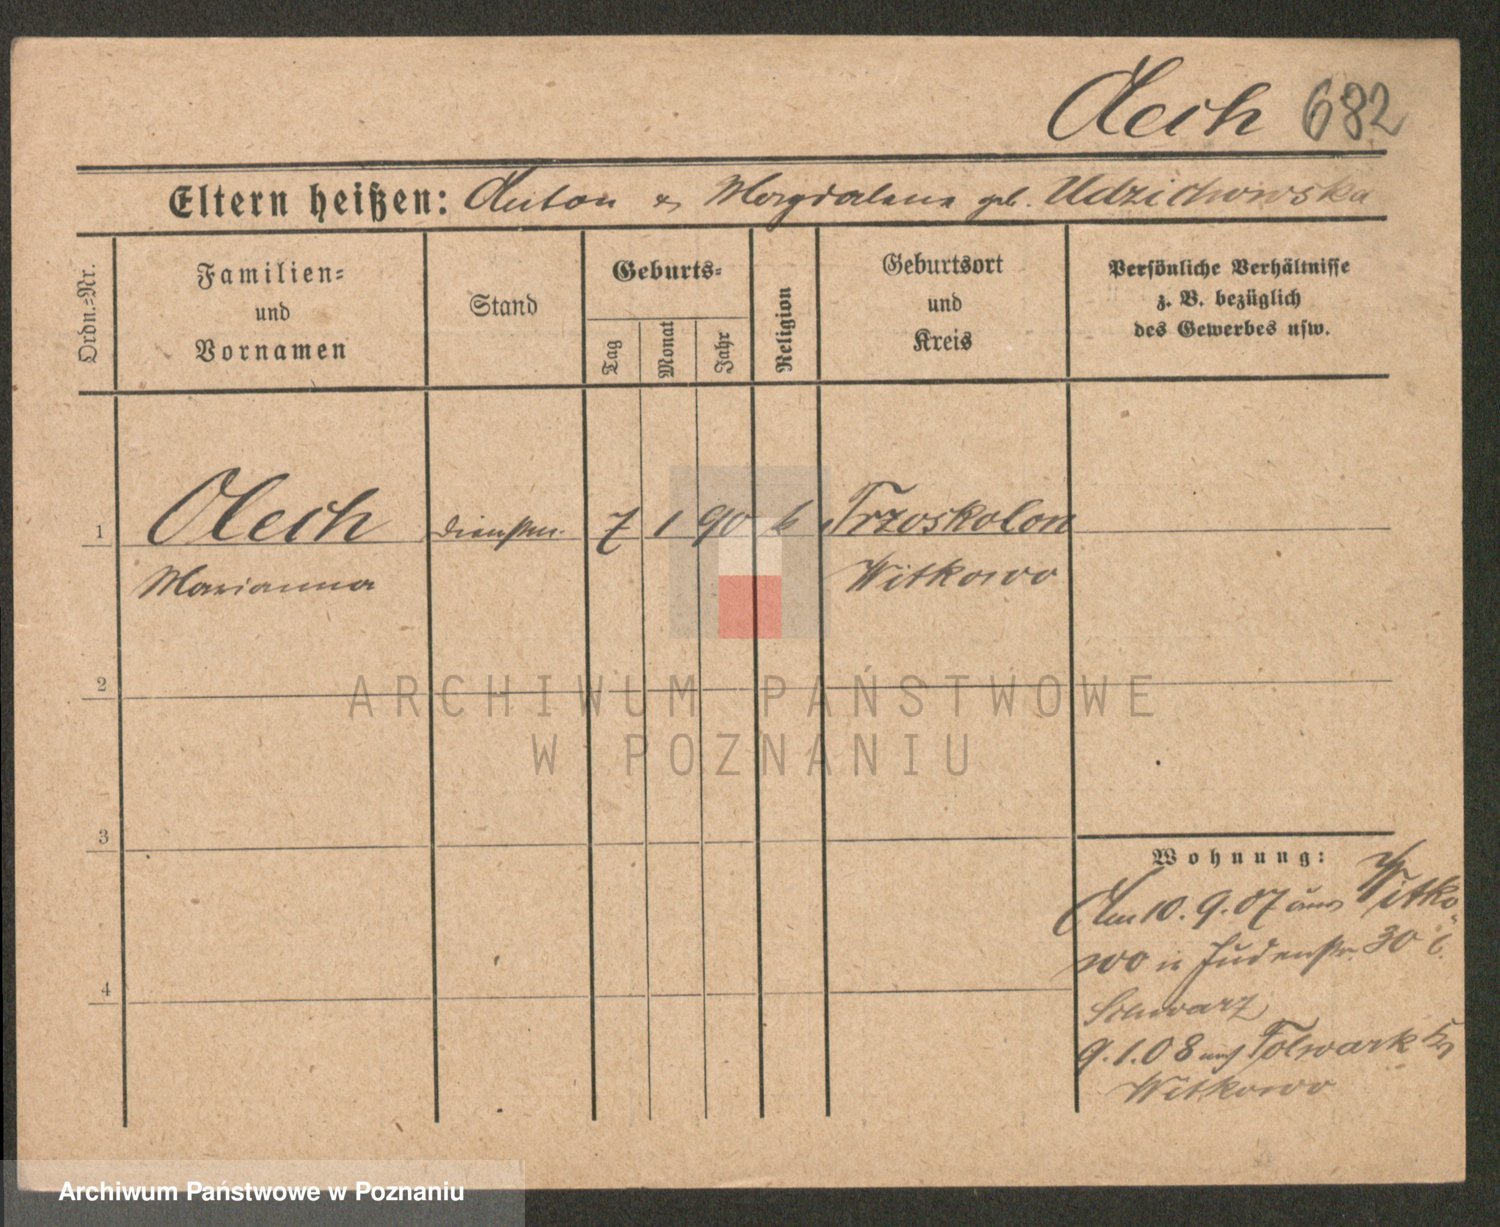 Olech 682
Eltern heißen: Anton & Magdalena geb. Udzichowska
Ordn.=Nr.
Familien=
und
Vornamen
Stand
Geburts=
Tag
Monat
Jahr
Religion
Geburtsort
und
Kreis
Persönliche Verhältnisse
z. B. bezüglich
des Gewerbes usw.
1 Olech 7 1 90 k Trzoskolon
Marianna Witkowo
2
3
4
Wohnung:
Am 10. 9. 07 aus Witko-
wo n Judenstr. 30 b.
Schwarz
9. 1. 08 nach Folwark Kr
Witkowo
ARCHIWUM PAŃSTWOWE
W POZNANIU
Archiwum Państwowe w Poznaniu